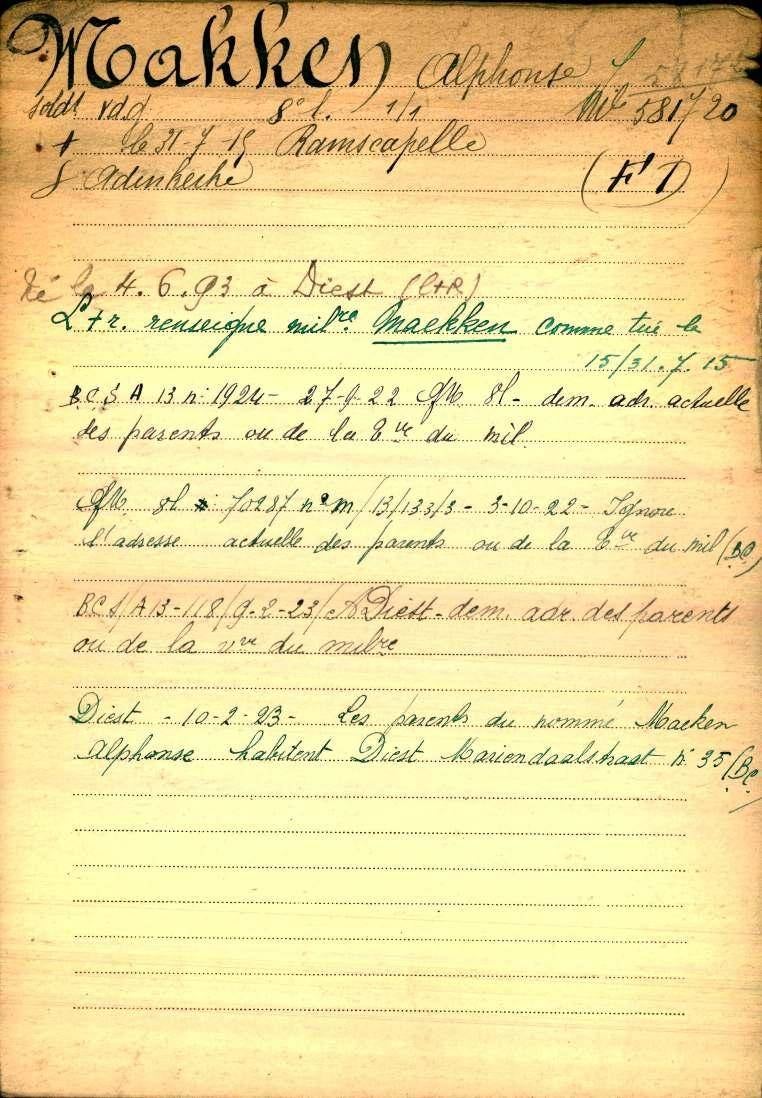 Makken Alphonse
Soldt v.d.g 8e l. 1/1 Mle 581/720
+ le 31-7-15 Ramscapelle
Adinkerke (F D)
Né le 4.6.93 à Diest (C+R)
L+r. renseigne milre. Maekken comme tué le
15/31.7.15
B.C.S A 13 n: 1924 - 27-9-22 QM 8l - dem. adr. actuelle
des parents ou de la Vve du mil.
QM 8l 70287 n° m/13/133/3 - 3-10-22 - Ignore
l'adresse actuelle des parents ou de la Vve du mil (BC)
BCS/A13-118/9-2-23/A Diest - dem. adr. des parents
ou de la vve du milre
Diest - 10-2-23 - Les parents du nommé Maeken
Alphonse habitent Diest Mariendaalstraat n: 35 (BC)